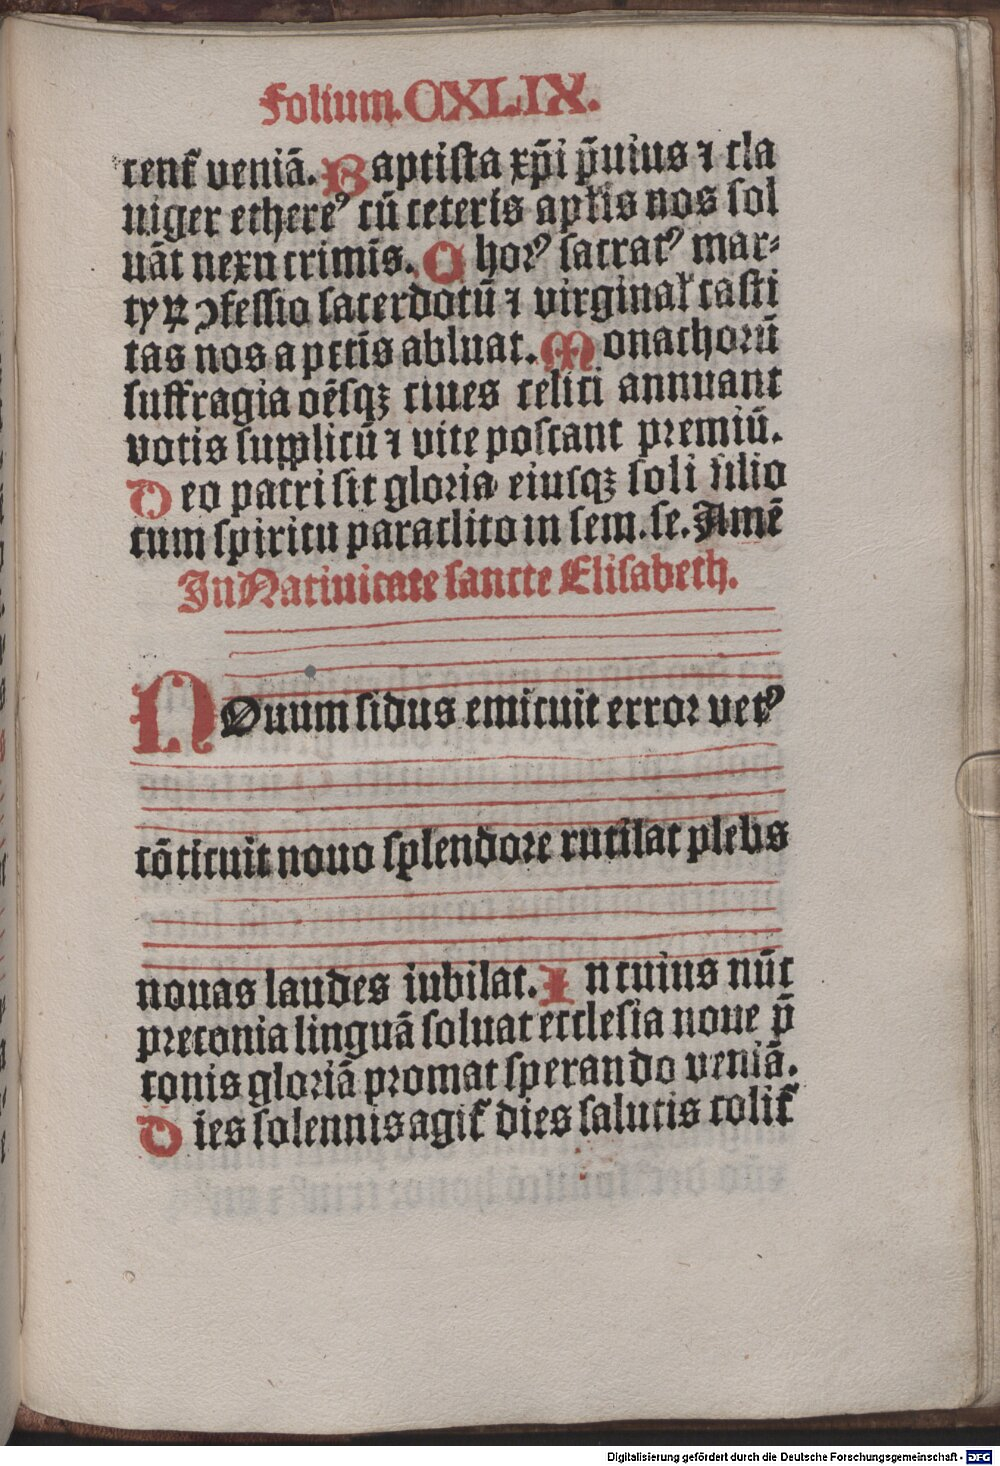 Folium. CXLIX.
rent᷑ veniā. Baptista xp̄i p̄uius ⁊ cla
uiger ethereꝰ cū ceteris apl̄is nos sol
uāt nexu crimīs. Chorꝰ sacratꝰ mar⸗
tyꝝ ꝯfessio sacerdotū ⁊ virginal᷑ casti
tas nos a pctīs abluat. Monachoꝛū
suffragia oēsqꝫ ciues celici annuant
votis supplicū ⁊ vite poscant premiū.
Deo patri sit gloria eiusqꝫ soli filio
cum spiritu paraclito in sem. se. Amē
In Natiuitate sancte Elisabeth.
NOuum sidus emicuit erroꝛ vetꝰ
cōticuit nouo splendoꝛe rutilat plebs
nouas laudes iubilat. In cuius nūc
pꝛeconia linguā soluat ecclesia noue p̄
conis gloꝛiā pꝛomat sperando veniā.
Dies solennis agit᷑ dies salutis colit᷑
Digitalisierung gefördert durch die Deutsche Forschungsgemeinschaft - DFG